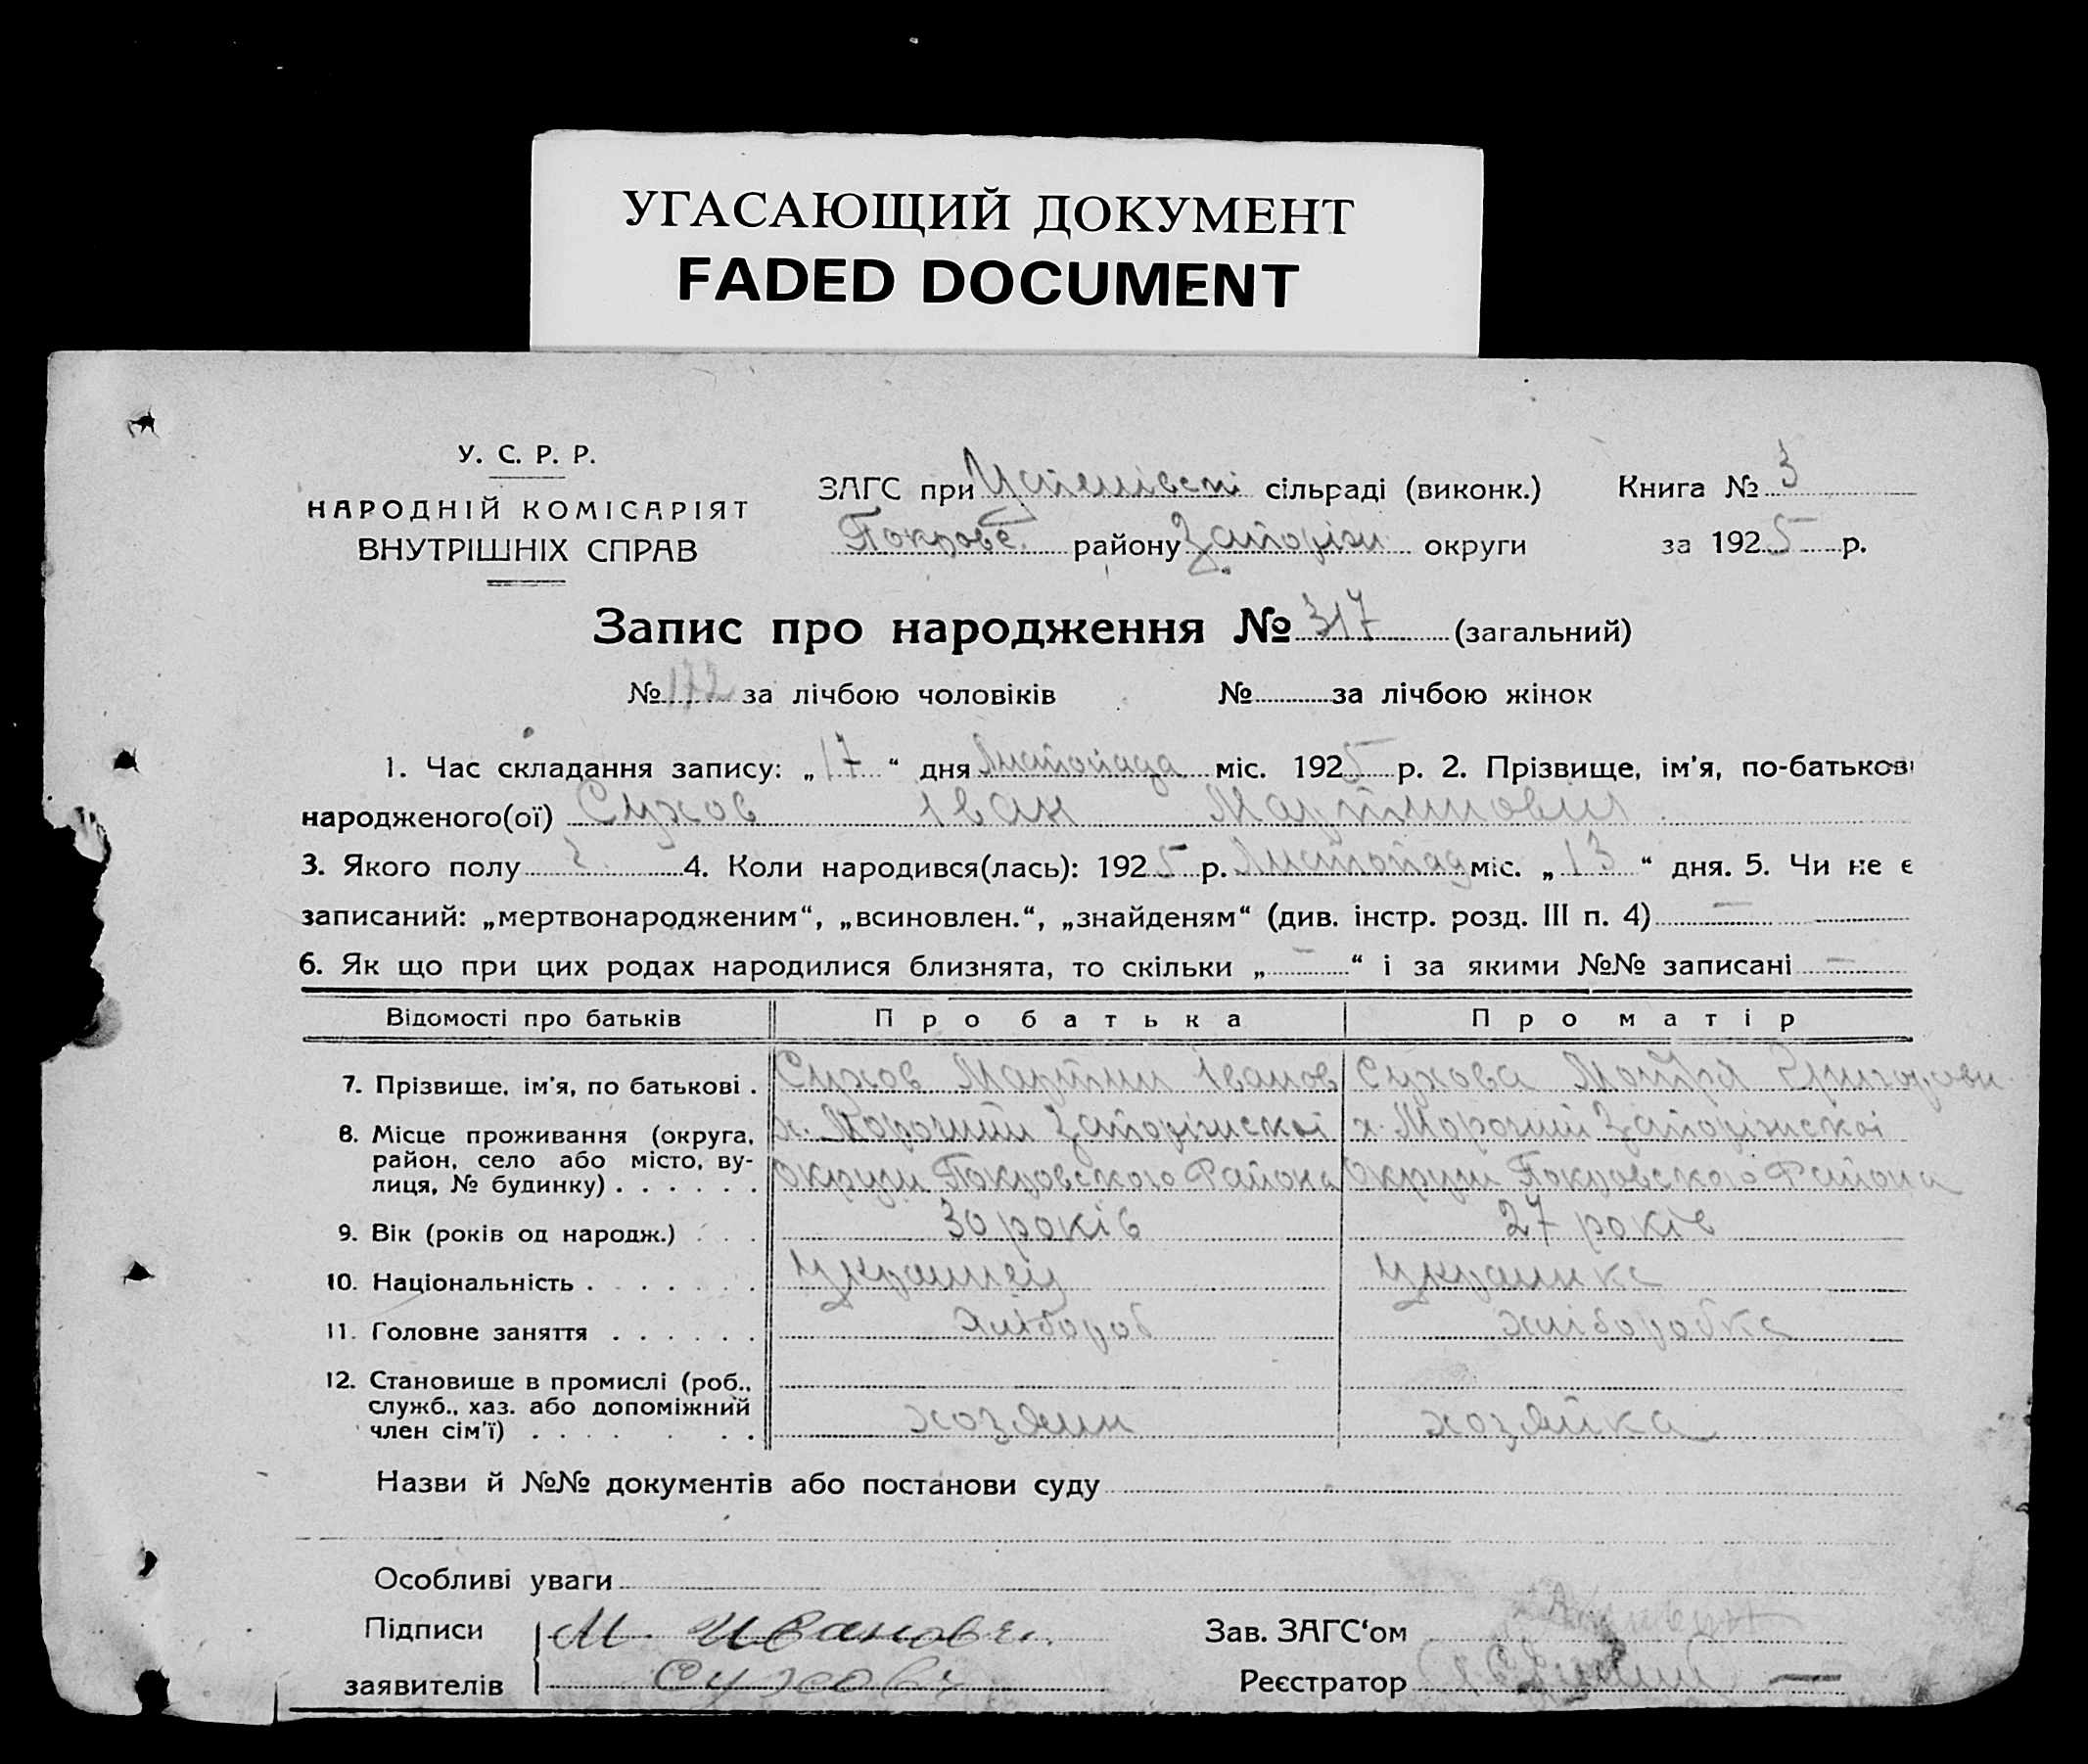 УГАСАЮЩИЙ ДОКУМЕНТ
FADED DOCUMENT
У. С. Р. Р.
НАРОДНІЙ КОМІСАРІЯТ
ВНУТРІШНІХ СПРАВ
ЗАГС при сільраді (виконк.) Книга № 3
Покровс. району Запоріж округи за 1925 р.
Запис про народження № 317 (загальний)
№ 172 за лічбою чоловіків № за лічбою жінок
1. Час складання запису: „ 17 “ дня Листопада міс. 1925 р. 2. Прізвище, ім'я, по-батькові
народженого(ої) Сухов Іван Мартинович
3. Якого полу 4. Коли народився(лась): 1925 р. Листопад міс. „ 13 “ дня. 5. Чи не є
записаний: „мертвонародженим“, „всиновлен.“, „знайденям“ (див. інстр. розд. III п. 4) —
6. Як що при цих родах народилися близнята, то скільки „ — “ і за якими №№ записані —
Відомості про батьків Про батька Про матір
7. Прізвище, ім'я, по батькові . Сухов Мартин Іванов Сухова Мотря Григоровн
8. Місце проживання (округа, х. Запоріжскої х. Запоріжскої
район, село або місто, ву-
лиця, № будинку) . . . . . . Округи Покровского Района Округи Покровского Района
9. Вік (років од народж.) . . . 30 років 27 років
10. Національність . . . . . . . українец українка
11. Головне заняття . . . . . . хлібороб хліборобка
12. Становище в промислі (роб.,
служб., хаз. або допоміжний
член сім'ї) . . . . . . . хозяин хозяйка
Назви й №№ документів або постанови суду
Особливі уваги
Підписи М. Иванови. Зав. ЗАГС‘ом
заявителів Сухові Реєстратор